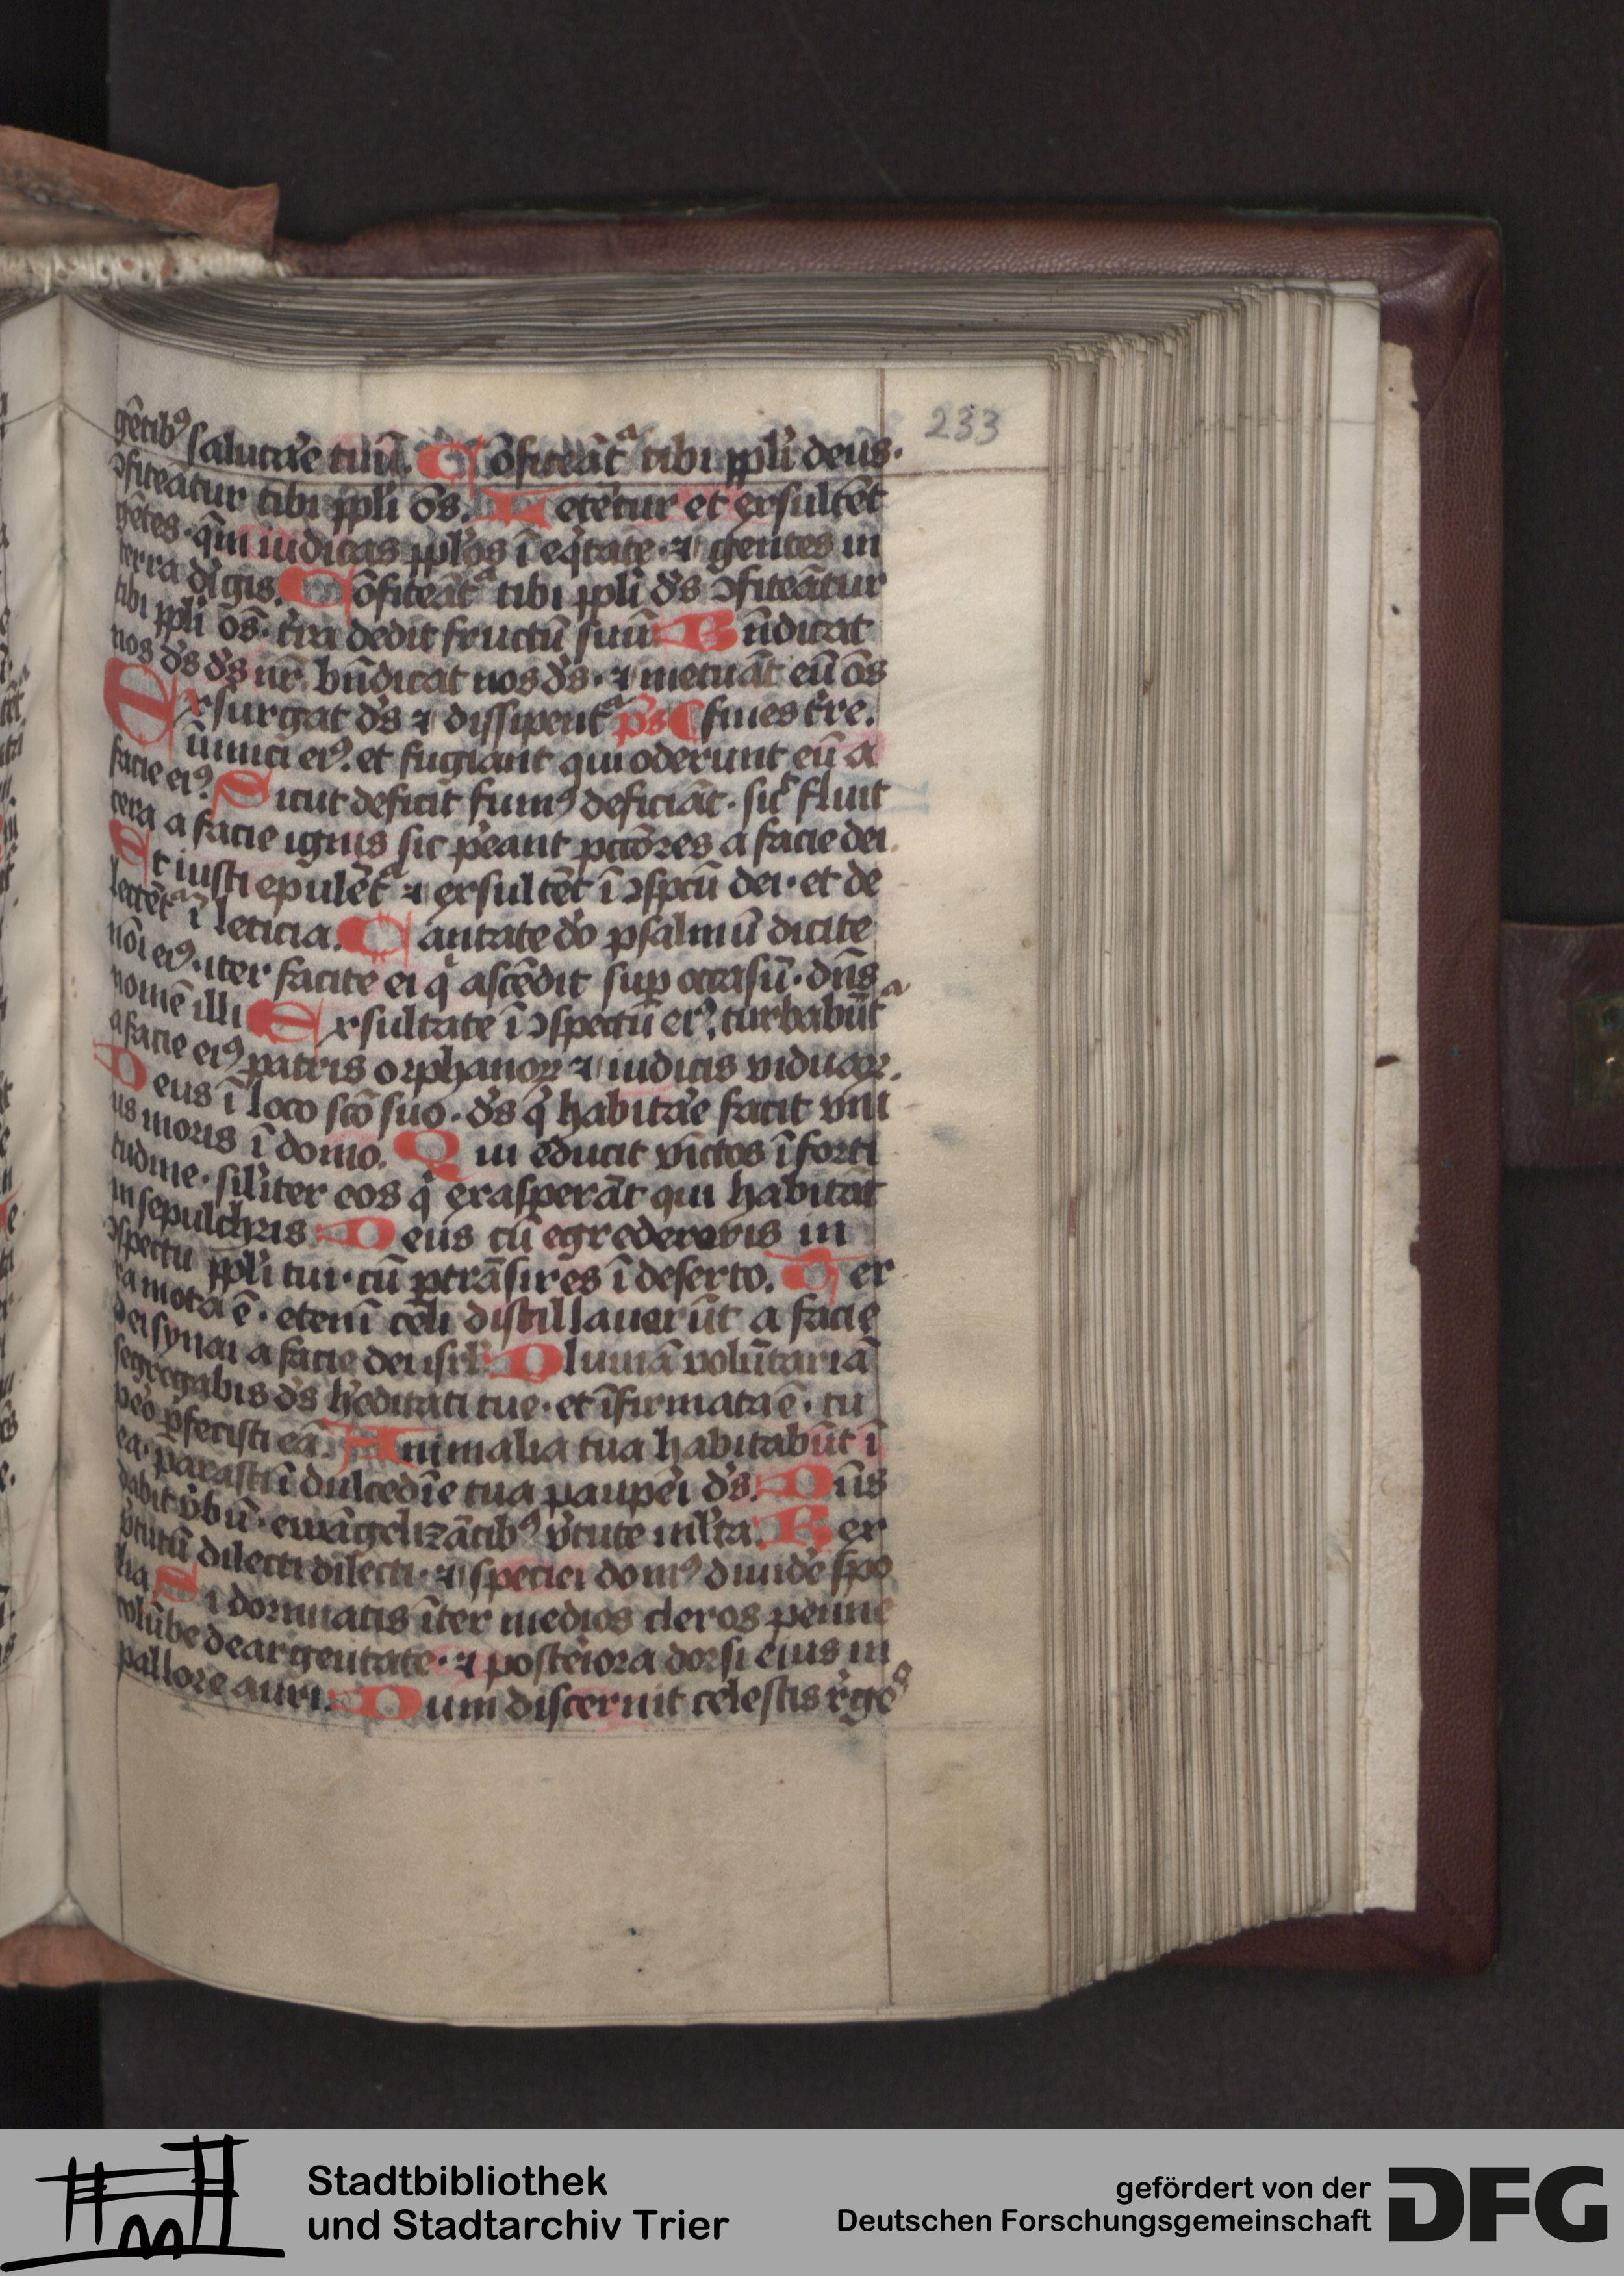 233
gētibꝰ salutar̄e tuū. Cōfiteāt᷑ tibi ppli deus.
ↄfiteātur tibi ppli ōs. Letētur et exsultēt
gētes. qm̄ iudicas pplos ī eqͥtate. ⁊ gentes in
terra dͥigis. Cōfiteāt᷑ tibi ppli ds̄ ↄfiteātur
tibi ppli ōs. tr̄a dedit fructū suū. Bn̄dicat
nos ds̄ ds̄ nr̄. bn̄dicat nos ds̄. ⁊ metuāt eū ōs
Exsurgat ds̄ ⁊ dissipent᷑ ps̄ ¶ fines tr̄e.
inimici eiꝰ. et fugiant qui oderunt eū a
facie eiꝰ. Sicut deficit fumꝰ deficiāt. sic̄ fluit
cera a facie ignis sic pereant pcc̄ores a facie dei.
Et iusti epulēt᷑ ⁊ exsultēt ī ↄspcū dei. et de
lectēt᷑ ī leticia. Cantate dō psalmū dicite
nōi eiꝰ. iter facite ei qͥ ascēdit suꝑ occasū. dn̄s
nomē illi Exsultate ī ↄspectū eiꝰ, turbabūt᷑
a facie eiꝰ patris orphanoꝝ ⁊ iudicis viduaꝝ.
Deus ī loco scō suo. ds̄ qͥ habitar̄e facit vni
us moris ī domo. Qui educit vīctos ī forti
tudine. siliter eos qͥ exasperāt qui habitāt
in sepulchris. Deus cū egredereris in
ↄspectu ppli tui. cū ꝑtrāsires ī deserto. Ter
ra mota ē. etenī celi distillauerūt a facie
dei synai a facie dei isrl̄. Pluuiā volūtariā
segregabis ds̄ h̄editati tue. et īfirmata ē. tu
ṽo ꝑfecisti eā. Animalia tua habitabūt ī
ea. parasti ī dulcedīe tua pauꝑi ds̄. Dn̄s
dabit v̄bū. ewāgelizātibꝰ v̄tute ml̄ta. Rex
v̄tutū dilecti dilecti. ⁊ speciei domꝰ diuide spo
lia Si dormiatis īter medios cleros penne
colūbe deargentate. ⁊ posteriora dorsi eius in
pallore auri. Dum discernit celestis r̄geˢ
Stadtbibliothek
und Stadtarchiv Trier
gefördert von der
Deutschen Forschungsgemeinschaft
DFG